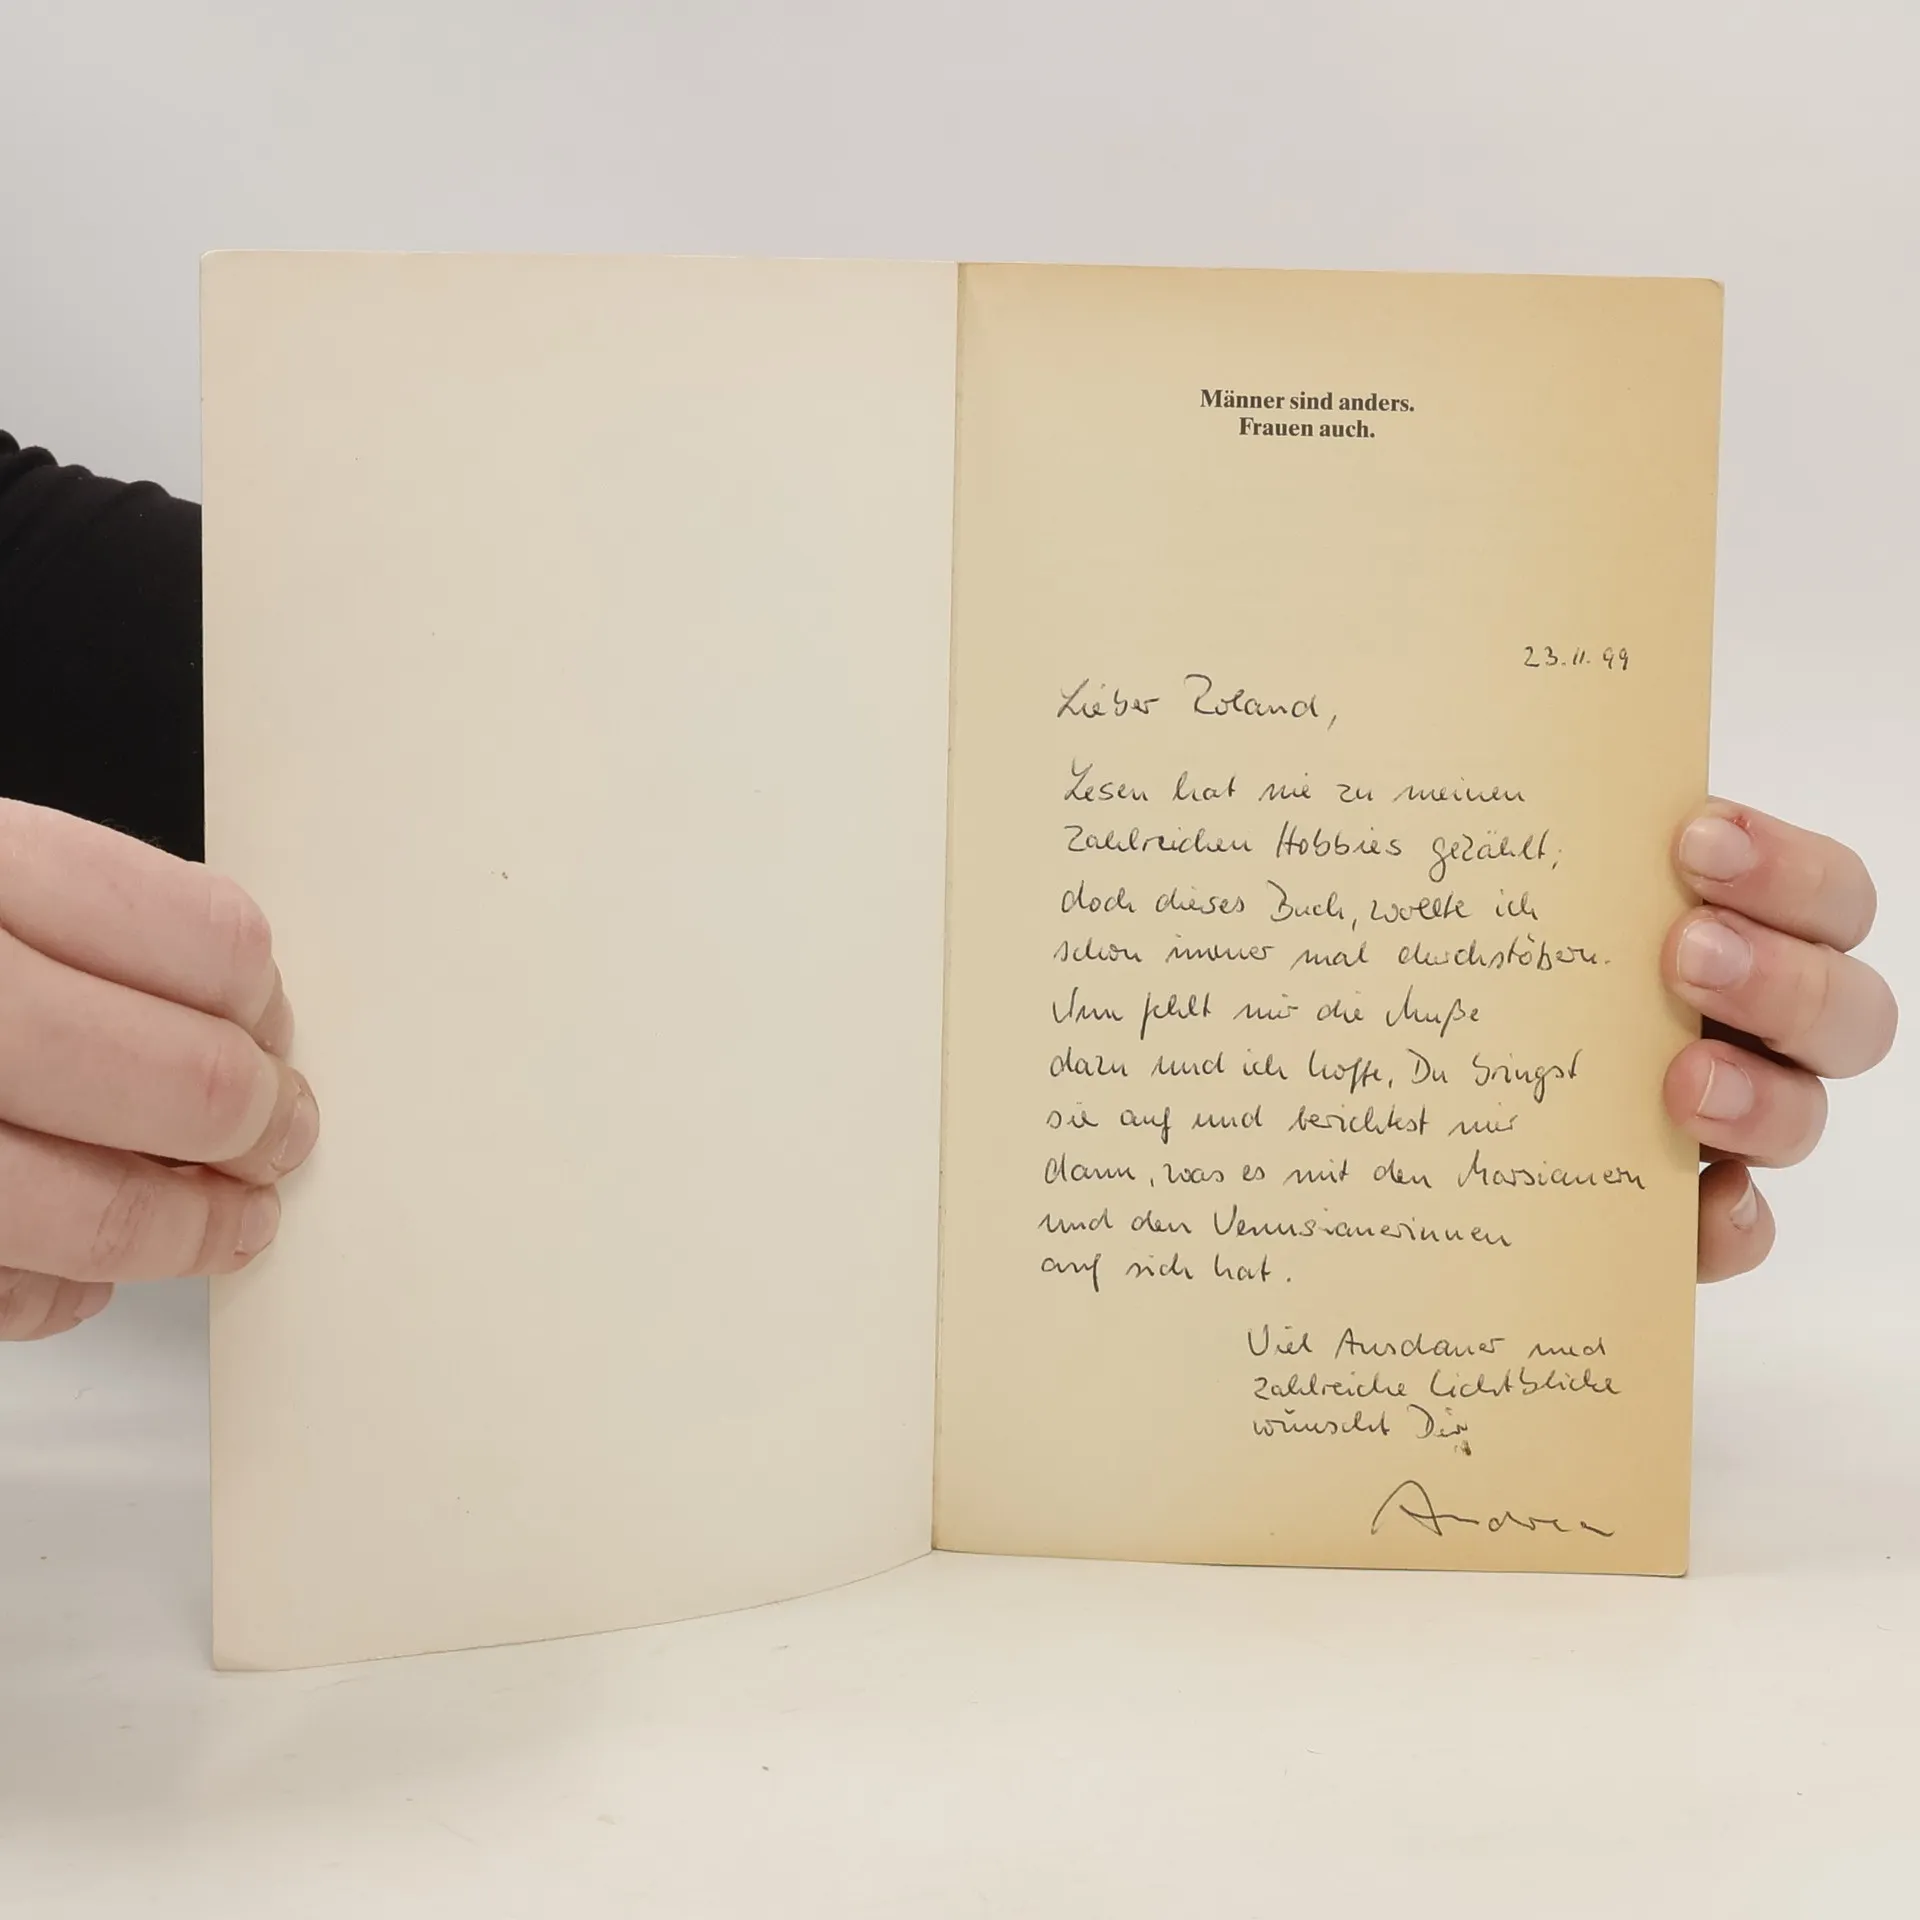 Männer sind anders.
Frauen auch.
23.11.99
Lieber Roland,
Lesen hat nie zu meinen
zahlreichen Hobbies gezählt;
doch dieses Buch, wollte ich
schon immer mal durchstöbern.
Nun fehlt mir die Muße
dazu und ich hoffe, Du bringst
sie auf und berichtest mir
dann, was es mit den Marsianern
und den Venusianerinnen
auf sich hat.
Viel Ausdauer und
zahlreiche Lichtblicke
wünscht Dir
Andrea